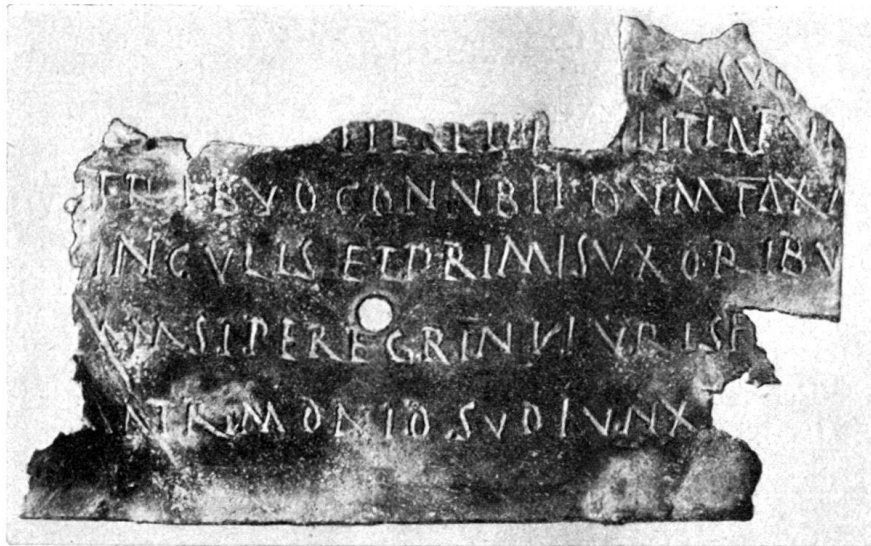 TRIBVO CONNBII DVMTAXA
INGVLIS ET PRIMIS VXORIBV
MSI PEREGRINI IVRIS F
ATRIMONIO SVO IVNX